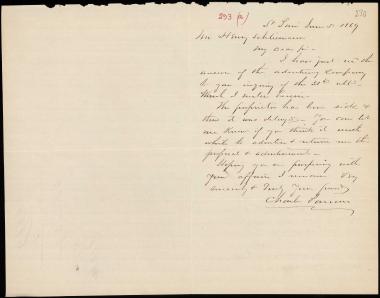 293 (a)
St Louis June 5. 1869
Mr Henry Schliemann
My dear Sir
I have just recd the
answer of the advertising Company
to your inquiry of the 28th ulto
which I enclose herein.
The proprietor has been sick &
thus it was delayed. You can let
me know if you think it worth
while to advertise & return me the
proposal & advertisement.
Hoping you are prospering with
your affairs I remain Very
sincerely & truly your friend
Charles Parsons